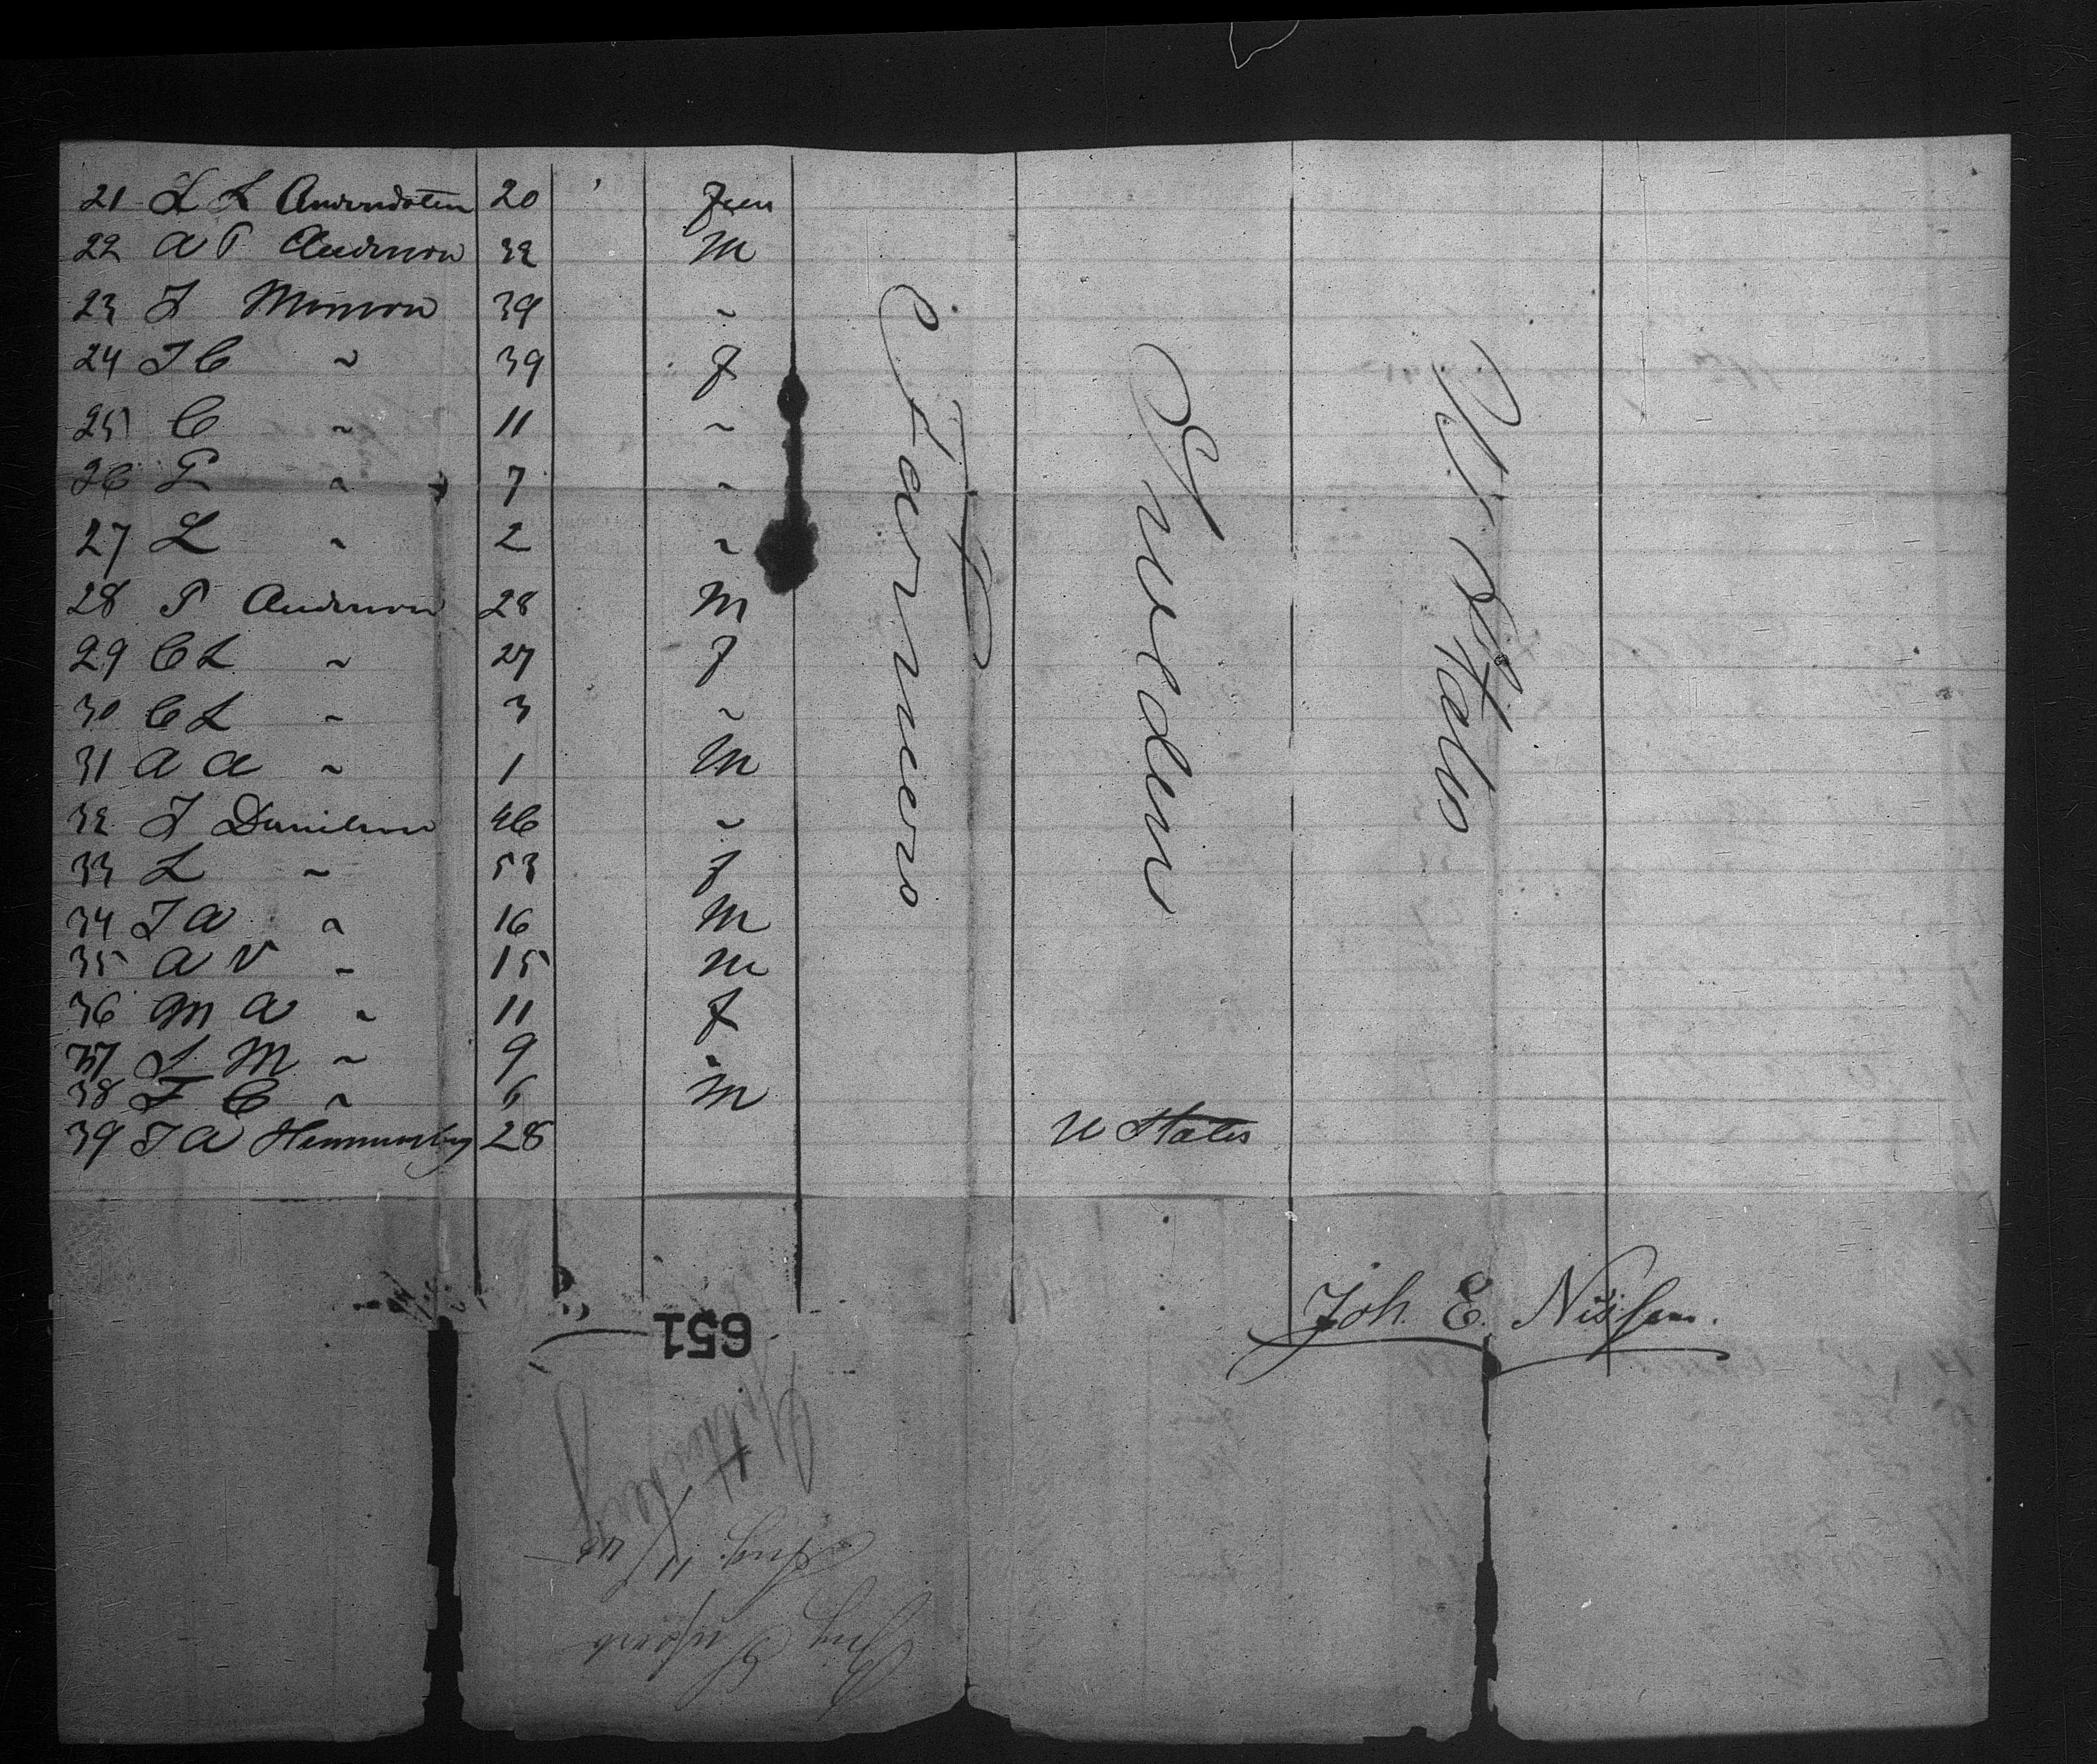 21 L L Andersdoten 20 Fem
22 A P Anderson 32 M
23 J Monson 39 "
24 J C " 39 F
25 C " 11 "
26 P " 7 "
27 L " 2 "
28 P Anderson 28 M
29 C L " 27 F
30 C L " 3 "
31 A A " 1 M
32 J Danielson 46 "
33 L " 53 F
34 J A " 16 M
35 A V " 15 M
36 M A " 11 F
37 L M " 9 "
38 F C " 6 M
39 J A Hemmingberg 28 U States
Farmers
Sweden
U. States
Joh. E. Nissen.
651
Gothenburg
Aug. 11/45
Brig Superb